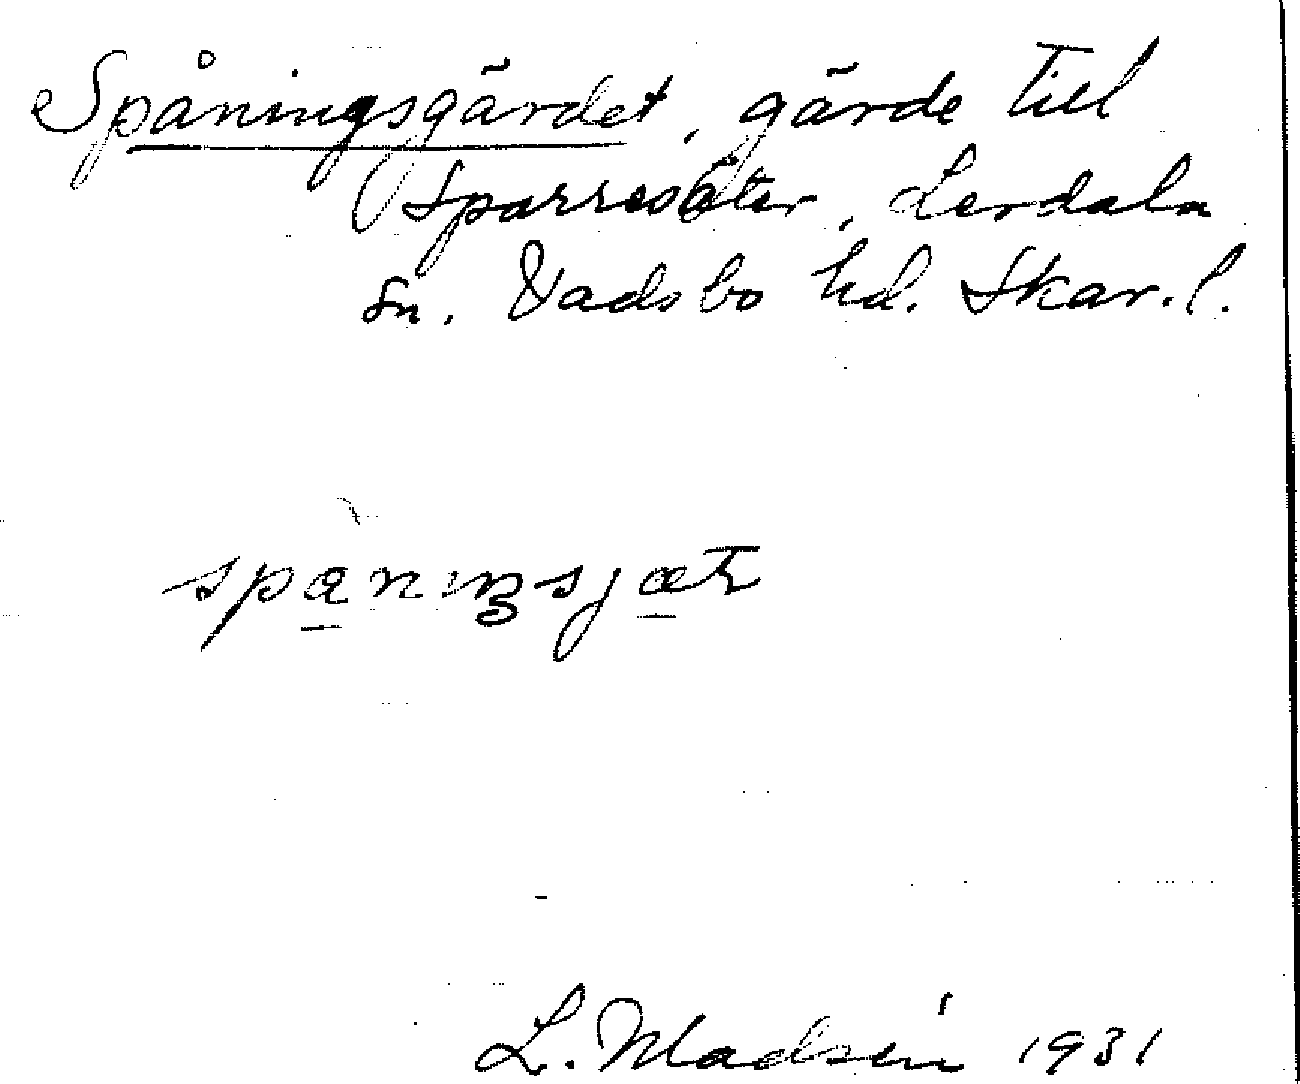 Spåningsgärdet, gärde till
Sparresäter, Lerdala
sn. Vadsbo hd. Skar. l.
L. Madsén 1931